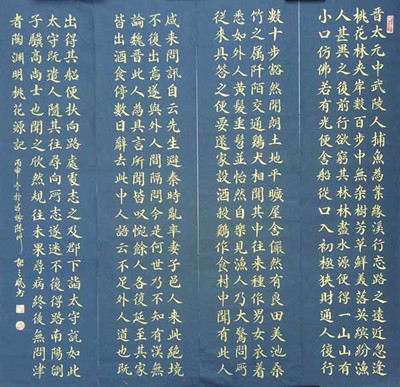 晋太元中武陵人捕魚為業緣溪行忘路之遠近忽逢
桃花林夹岸數百步中無杂樹芳草鮮美落英缤紛漁
人甚異之復前行欲窮其林林盡水源便得一山山有
小口仿佛若有光便舍船從口入初極狭財通人復行
數十步豁然開朗土地平曠屋舍儼然有良田美池桑
竹之属阡陌交通鷄犬相聞其中往来種作男女衣着
悉如外人黄髮垂髫並怡然自樂見漁人乃大驚問所
從来具答之便要還家設酒殺鷄作食村中聞有此人
咸来問訊自云先生避秦時亂率妻子邑人来此絶境
不復出焉遂與外人間隔問今是何世乃不知有漢無
論魏晉此人為具言所聞皆叹惋餘人各復延至其家
皆出酒食停數日辭去此中人語云不足外人道也既
出得其船便扶向路處處志之及郡下詣太守說如此
太守既遣人隨其往尋向所志遂迷不復得路南陽劉
子驥高尚士也聞之欣然規往未果尋病終後無問津
者陶淵明桃花源記 丙申